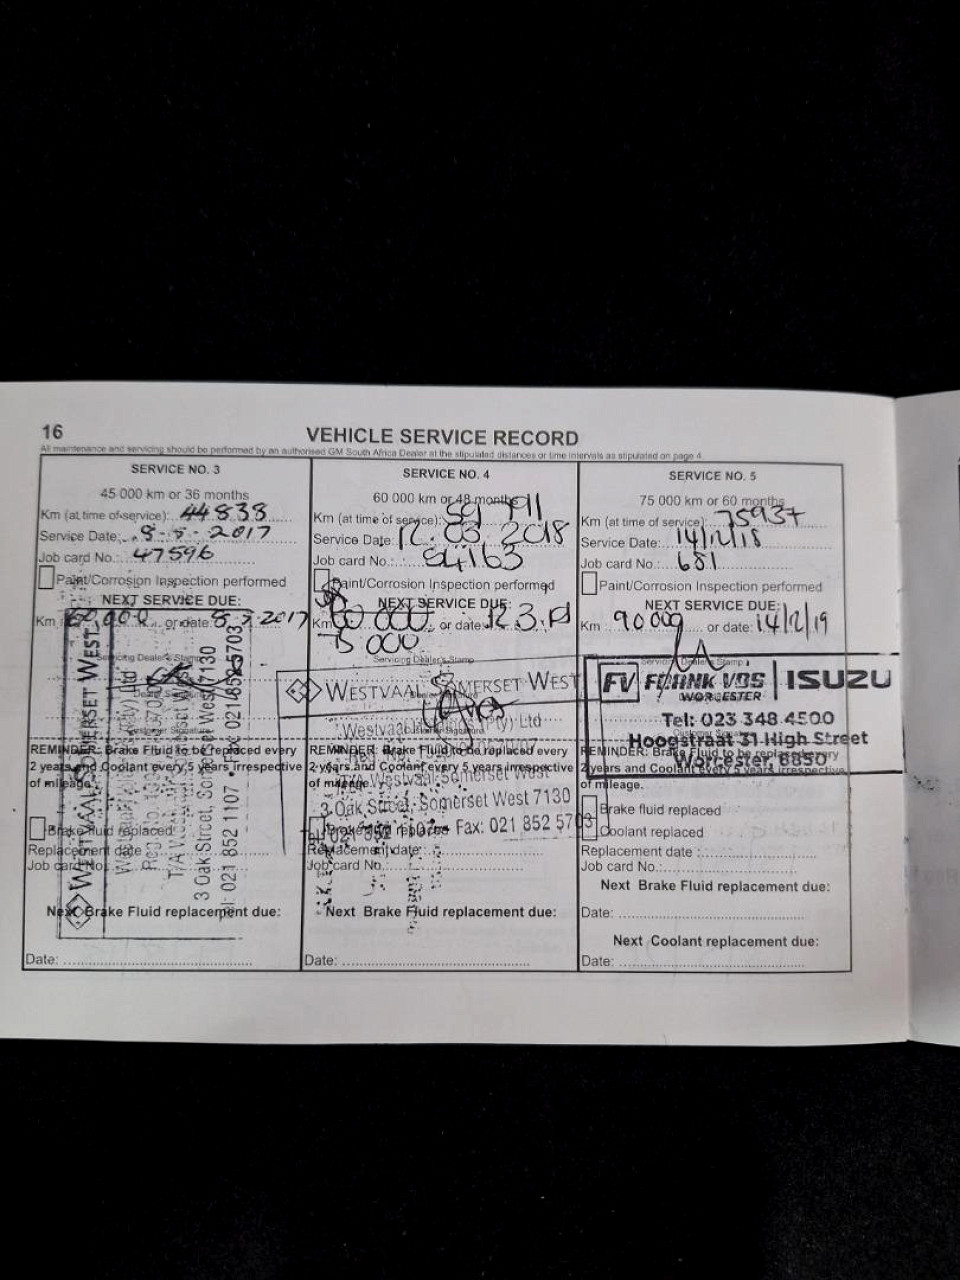 16
VEHICLE SERVICE RECORD
All maintenance and servicing should be performed by an authorised GM South Africa Dealer at the stipulated distances or time intervals as stipulated on page 4.
SERVICE NO. 3
45 000 km or 36 months
Km (at time of service): 44838
Service Date: 8-5-2017
Job card No.: 47596
Paint/Corrosion Inspection performed
NEXT SERVICE DUE:
Km 60,000 or date: 8.5.2017
Servicing Dealer's Stamp
WESTVAAL SOMERSET WEST
3 Oak Street, Somerset West 7130
Tel: 021 852 1107 • Fax: 021 852 5703
REMINDER: Brake Fluid to be replaced every
2 years and Coolant every 5 years irrespective
of mileage.
Brake fluid replaced
Replacement date
Job card No.
Next Brake Fluid replacement due:
Date:
SERVICE NO. 4
60 000 km or 48 months
Km (at time of service): 59 791
Service Date: 12.03.2018
Job card No.: 54163
Paint/Corrosion Inspection performed
NEXT SERVICE DUE:
Km or date: 12.3.19
75 000
Servicing Dealer's Stamp
WESTVAAL SOMERSET WEST
(Pty) Ltd
Customer Signature
REMINDER: Brake Fluid to be replaced every
2 years and Coolant every 5 years irrespective
of mileage.
T/A Westvaal Somerset West
3 Oak Street, Somerset West 7130
Tel: 021 852 1107 Fax: 021 852 5703
Brake fluid replaced
Replacement date:
Job card No.
Next Brake Fluid replacement due:
Date:
SERVICE NO. 5
75 000 km or 60 months
Km (at time of service): 75937
Service Date: 14/12/18
Job card No.: 681
Paint/Corrosion Inspection performed
NEXT SERVICE DUE:
Km 90 000 or date: 14/12/19
Servicing Dealer's Stamp
FV FRANK VOS ISUZU
WORCESTER
Tel: 023 348 4500
Hoogstraat 31 High Street
Worcester 6850
REMINDER: Brake Fluid to be replaced every
2 years and Coolant every 5 years irrespective
of mileage.
Brake fluid replaced
Coolant replaced
Replacement date :
Job card No.
Next Brake Fluid replacement due:
Date:
Next Coolant replacement due:
Date: